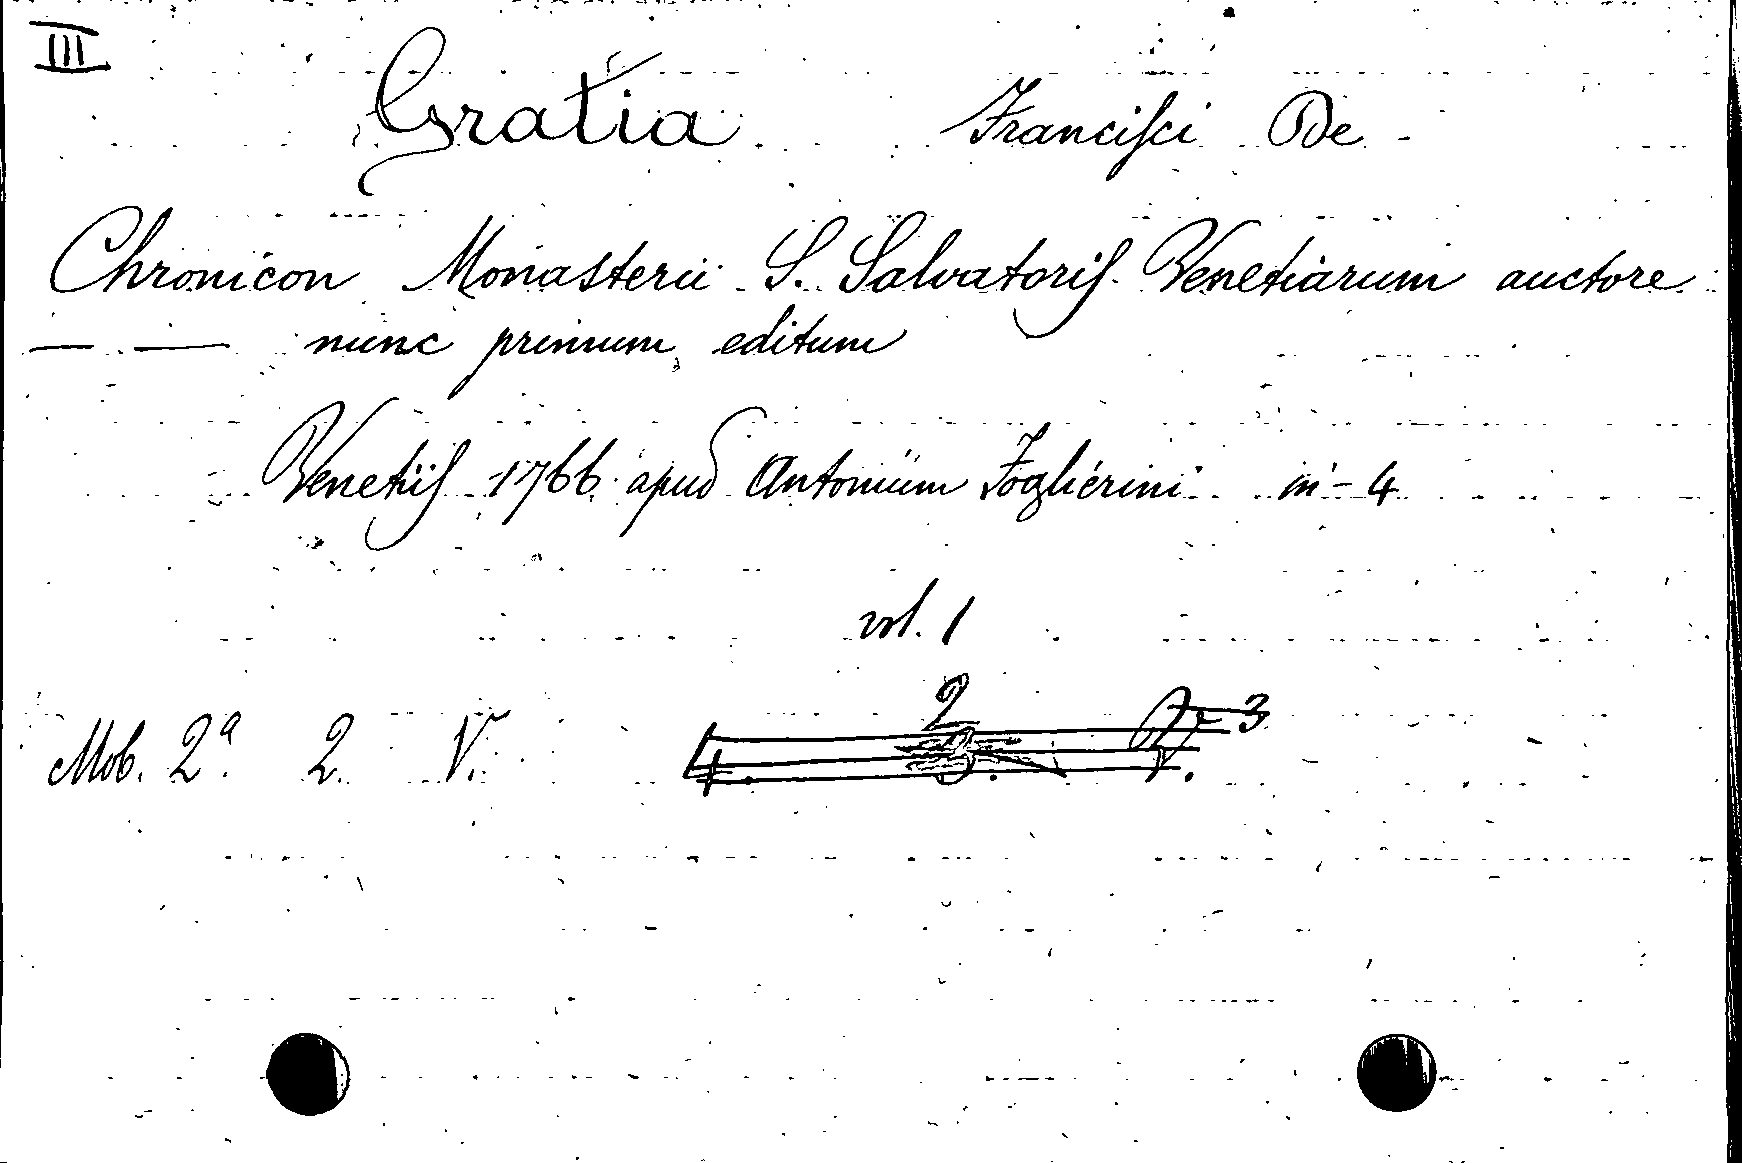 III
Gratia Francisci De
Chronicon Monasterii S. Salvatoris Venetiarum auctore
— — nunc primum editum
Venetiis 1766 apud Antonium Foglierini in-4
vol. 1
Mob. 2ª 2. V. 4. 2 3. V. 3